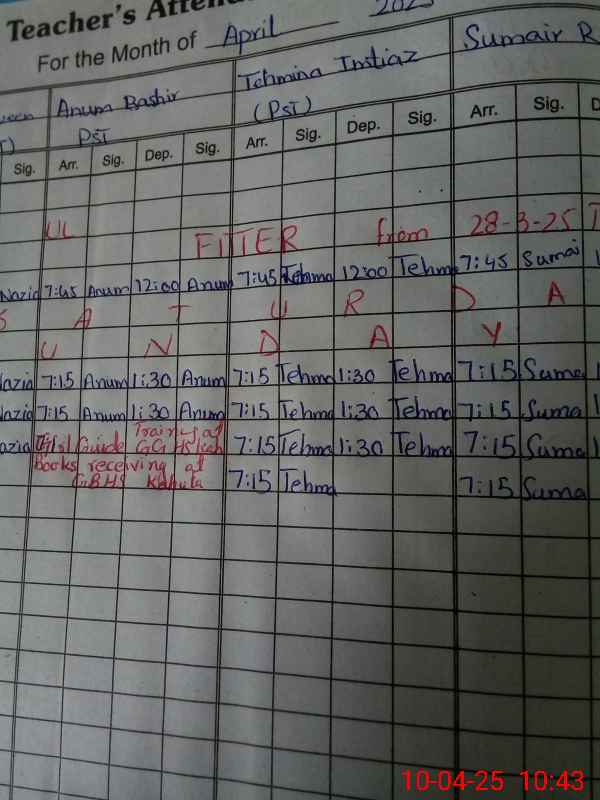 Teacher's Atten
For the Month of April 202
Anum Bashir Tehmina Imtiaz Sumair R
PST (PST)
Sig. Arr. Sig. Dep. Sig. Arr. Sig. Dep. Sig. Arr. Sig. D
UL FITTER from 28-3-25 T
Nazia 7:45 Anum 12:00 Anum 7:45 Tehma 12:00 Tehma 7:45 Sumai 1
S A T U R D A
U N D A Y
Nazia 7:15 Anum 1:30 Anum 7:15 Tehma 1:30 Tehma 7:15 Suma 1
Nazia 7:15 Anum 1:30 Anum 7:15 Tehma 1:30 Tehma 7:15 Suma 1
azia Girl Guide Training at GGHS Kah 7:15 Tehma 1:30 Tehma 7:15 Suma 1
Books receiving at GBHS Kahuta 7:15 Tehma 7:15 Suma
10-04-25 10:43